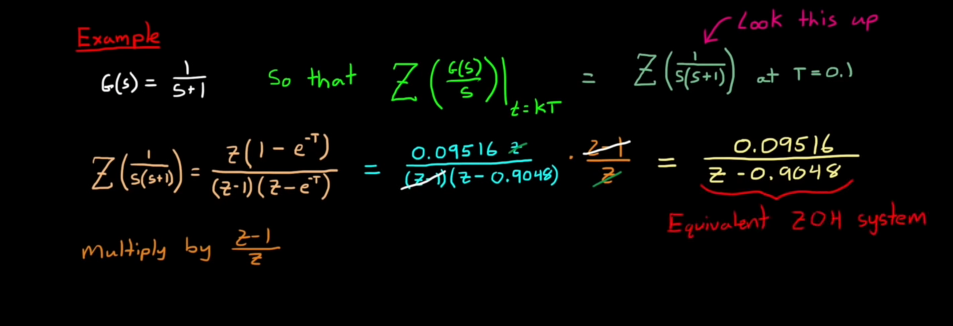 Look this up
Example
G(s) = 1/(s+1) So that Z(G(s)/s)|t=kT = Z(1/(s(s+1))) at T=0.1
Z(1/(s(s+1))) = z(1-e^-T)/((z-1)(z-e^-T)) = 0.09516 z/((z-1)(z-0.9048)) · (z-1)/z = 0.09516/(z-0.9048)
Equivalent ZOH system
Multiply by (z-1)/z